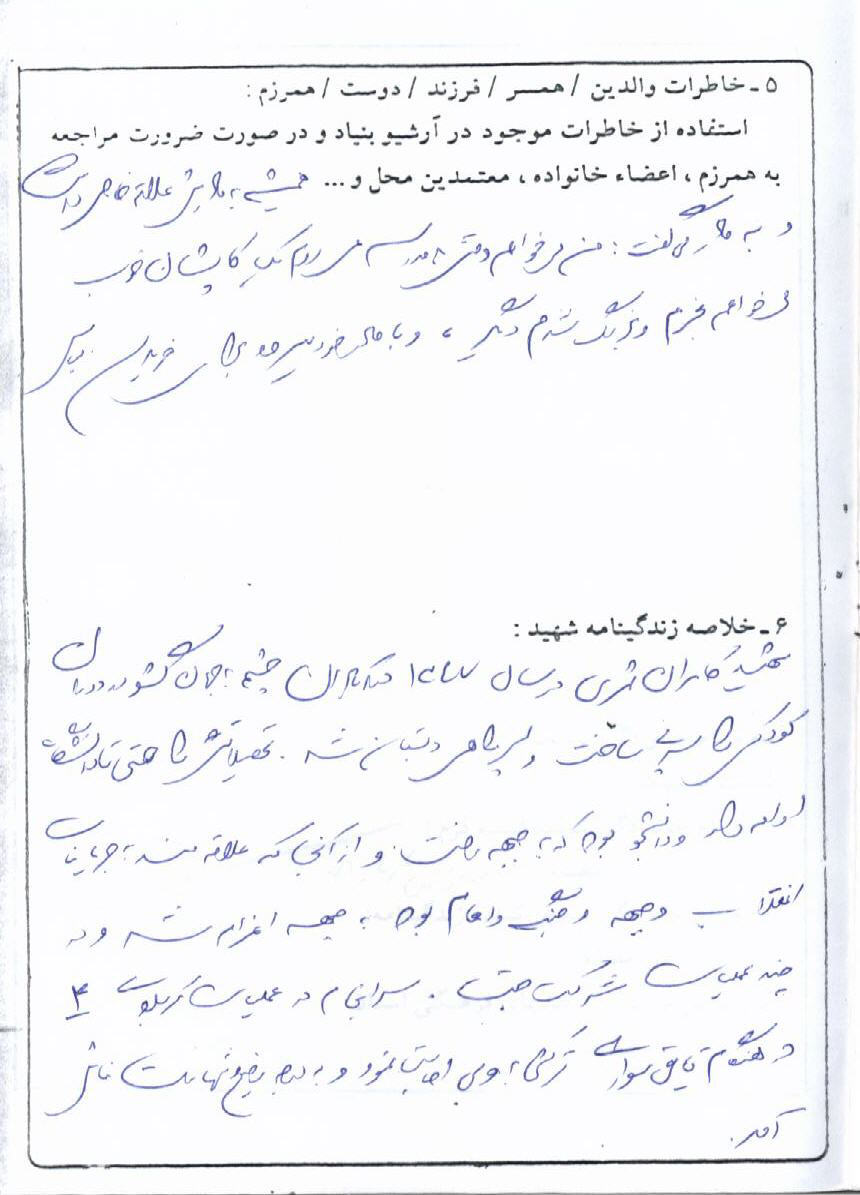 ۵ ـ خاطرات والدین / همسر / فرزند / دوست / همرزم :
استفاده از خاطرات موجود در آرشیو بنیاد و در صورت ضرورت مراجعه
به همرزم ، اعضاء خانواده ، معتمدین محل و ... همیشه به علاقه خاصی داشت
و به می گفت : من می خواهم وقتی مدرسه می روم یک کاپشن خوب
می خواهم بخرم و بزرگ شدم دیگر ، و با خود برای خریدن لباس
۶ ـ خلاصه زندگینامه شهید :
شهید کامران در سال در تهران چشم به جهان گشود دوران
کودکی را سپری ساخت و راهی دبستان شد . تحصیلاتش را حتی تا دانشگاه
ادامه داد و دانشجو بود که به جبهه رفت و از آنجا که علاقه مند به جریانات
انقلاب و جبهه و جنگ و امام بود به جبهه اعزام شد و در
چند عملیات شرکت جست . سرانجام در عملیات کربلای ۴
در هنگام قایق سواری ترکش به وی اصابت نمود و به درجه رفیع شهادت نائل
آمد .